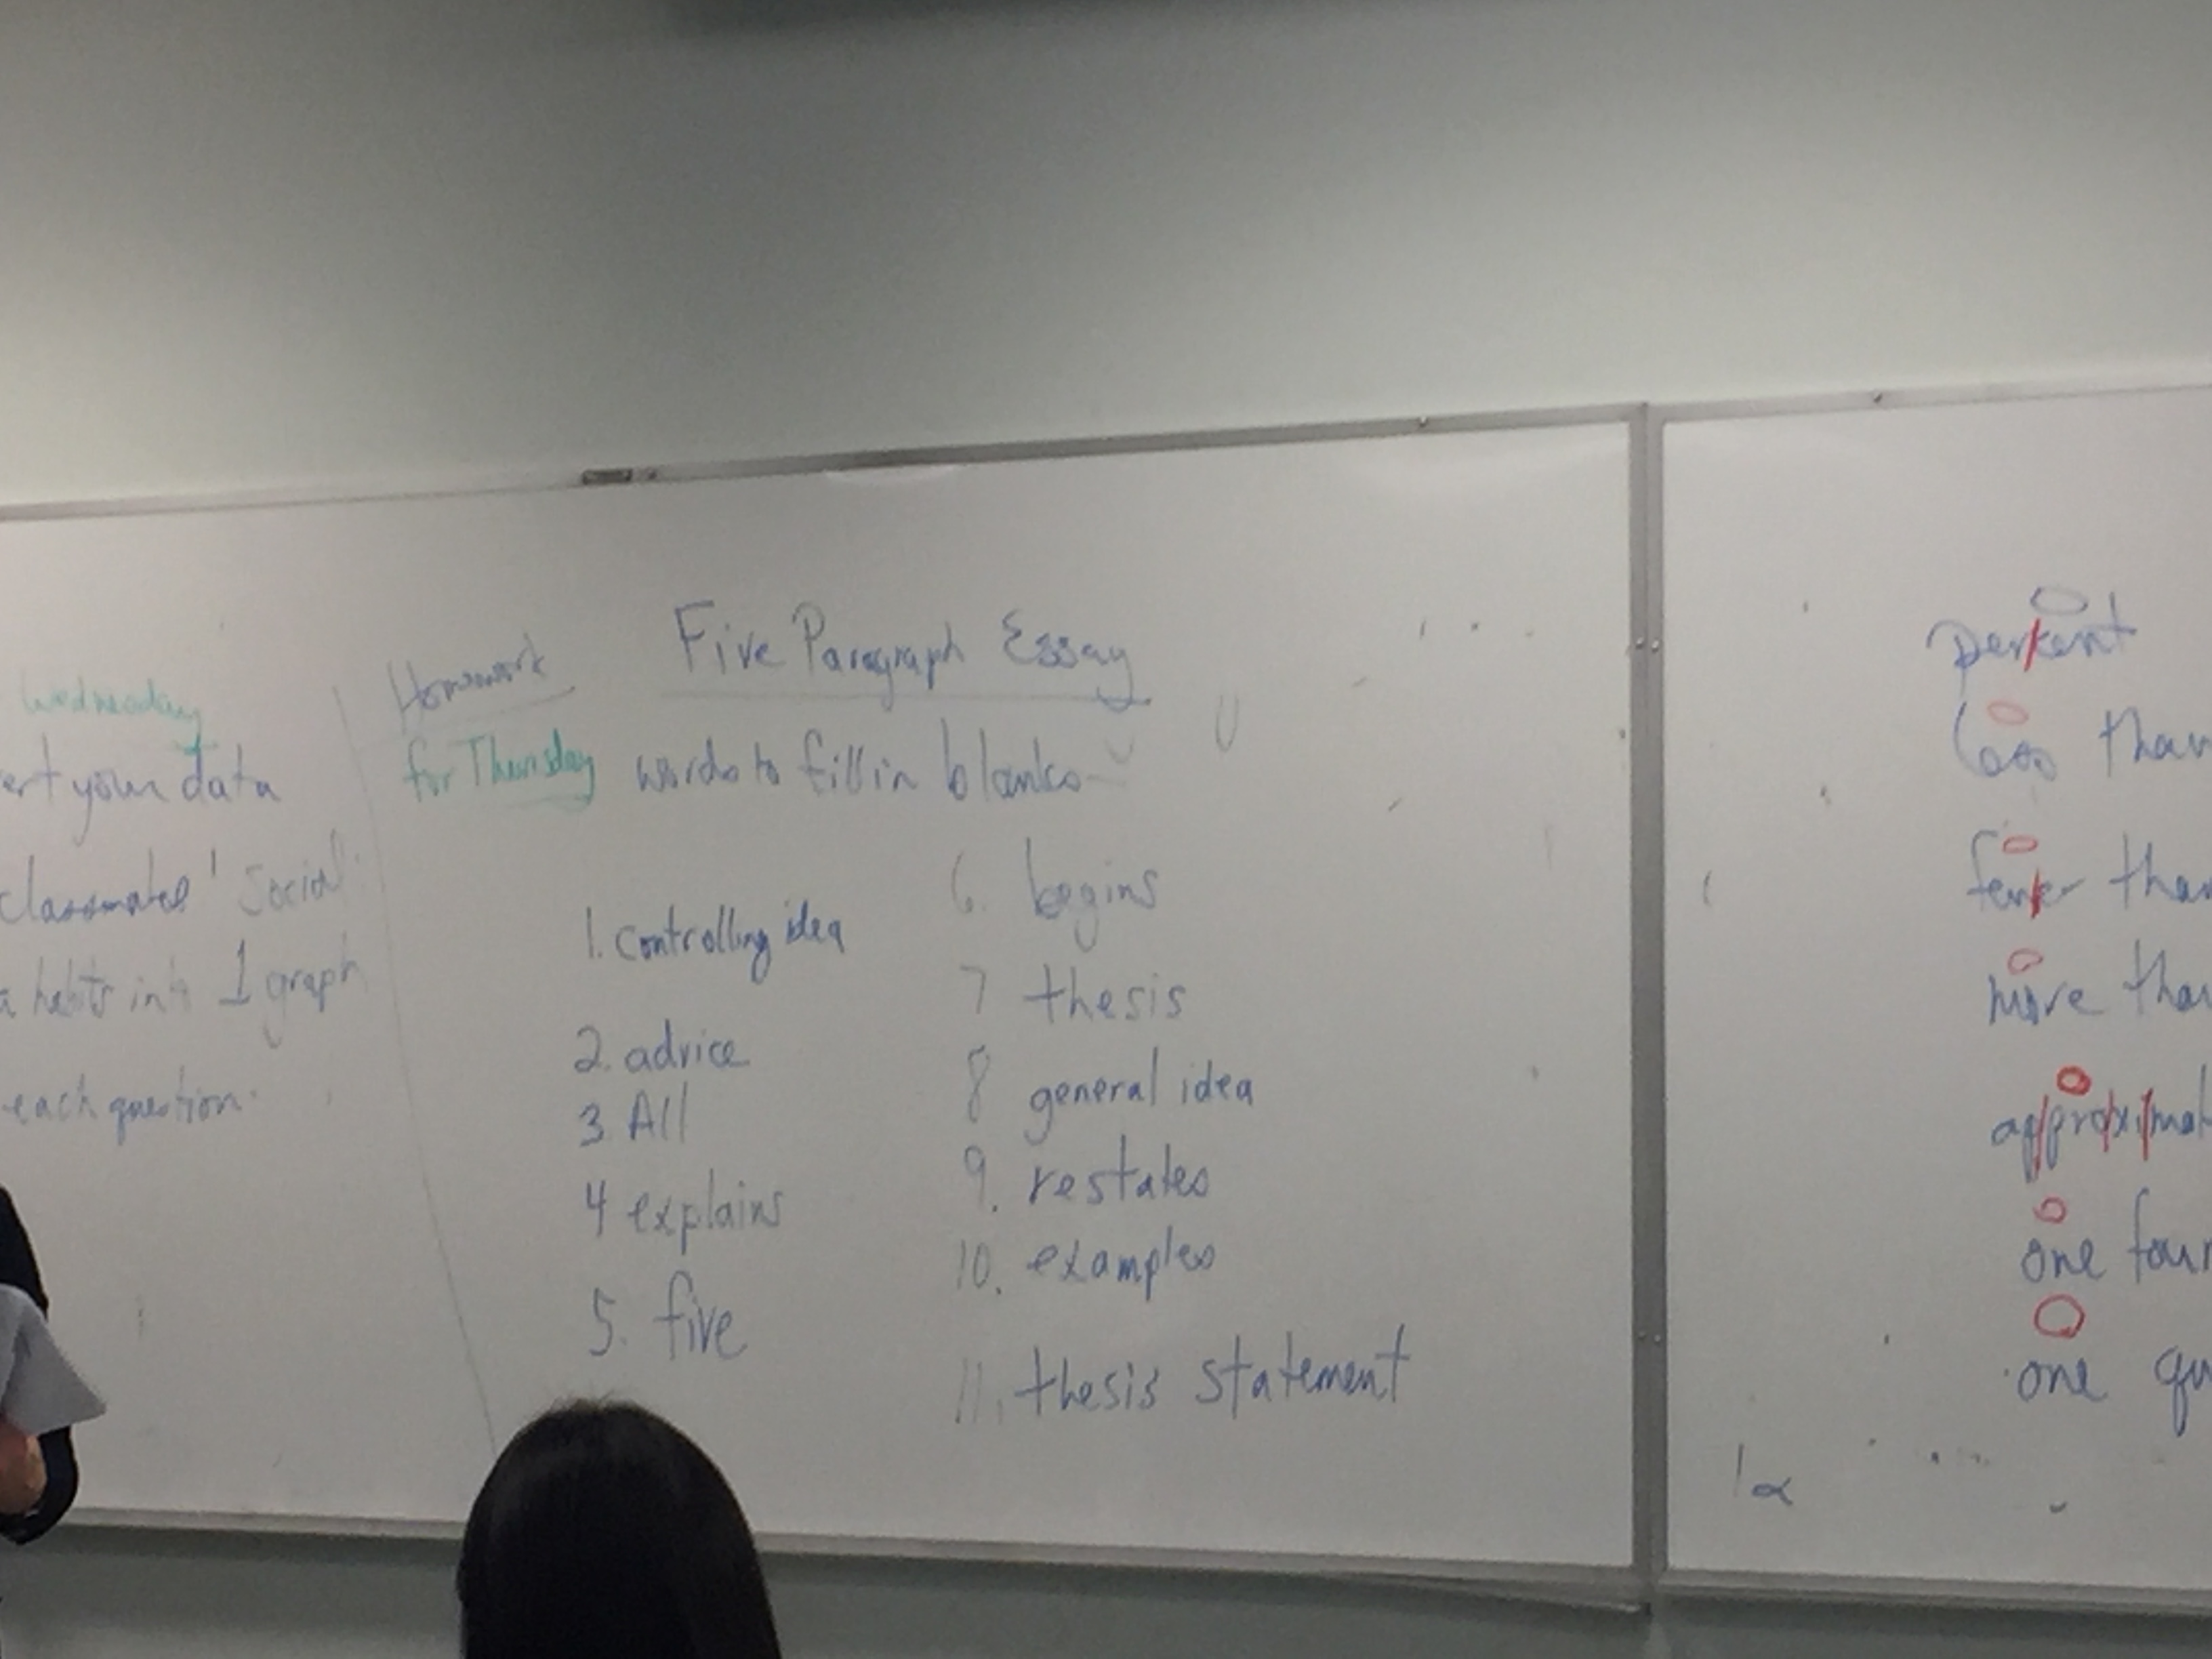 Wednesday
ert your data
classmates' Social
a habits into 1 graph
each question.
Homework
for Thursday
Five Paragraph Essay
words to fill in blanks
1. controlling idea
2. advice
3 All
4 explains
5. five
6. begins
7 thesis
8 general idea
9. restates
10. examples
11. thesis statement
percent
less than
fewer than
more than
approximat
one four
one qu